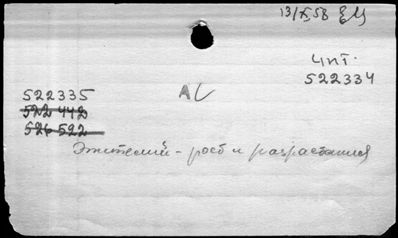 13/X 58
Чит.
522334
522335
522 442
526 522
Эпителий - рост и разрастания